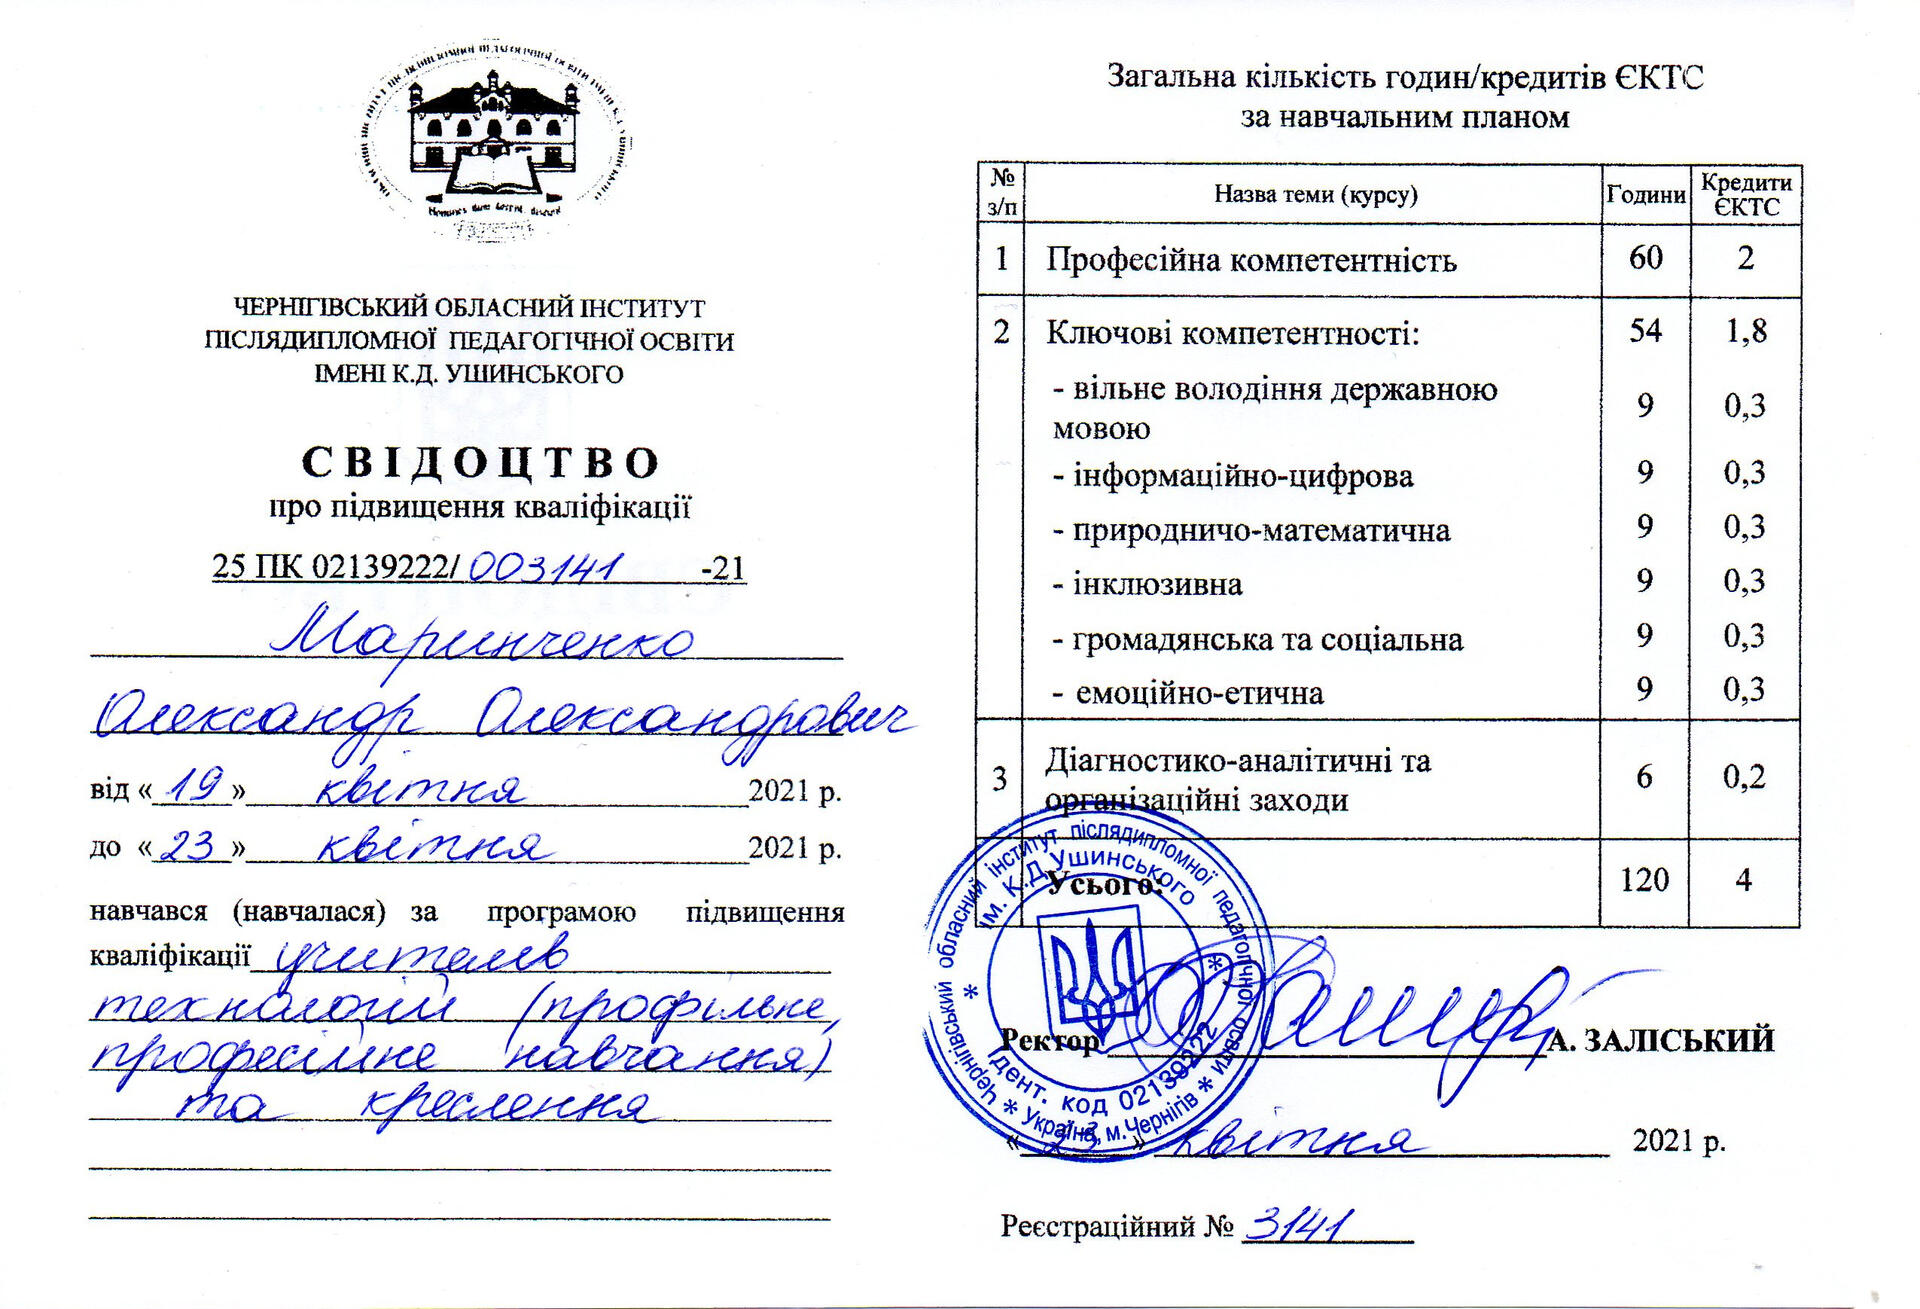 ЧЕРНІГІВСЬКИЙ ОБЛАСНИЙ ІНСТИТУТ
ПІСЛЯДИПЛОМНОЇ ПЕДАГОГІЧНОЇ ОСВІТИ
ІМЕНІ К.Д. УШИНСЬКОГО
СВІДОЦТВО
про підвищення кваліфікації
25 ПК 02139222/ 003141 -21
Маринченко
Олександр Олександрович
від « 19 » квітня 2021 р.
до « 23 » квітня 2021 р.
навчався (навчалася) за програмою підвищення
кваліфікації учителів
технологій (профільне,
професійне навчання)
та креслення
Загальна кількість годин/кредитів ЄКТС
за навчальним планом
№ з/п Назва теми (курсу) Години Кредити ЄКТС
1 Професійна компетентність 60 2
2 Ключові компетентності: 54 1,8
- вільне володіння державною
мовою 9 0,3
- інформаційно-цифрова 9 0,3
- природничо-математична 9 0,3
- інклюзивна 9 0,3
- громадянська та соціальна 9 0,3
- емоційно-етична 9 0,3
3 Діагностико-аналітичні та
організаційні заходи 6 0,2
Усього: 120 4
Чернігівський обласний інститут післядипломної педагогічної освіти
ім. К.Д.Ушинського
Ідент. код 02139222
* Україна, м.Чернігів *
Ректор А. ЗАЛІСЬКИЙ
« 23 » квітня 2021 р.
Реєстраційний № 3141